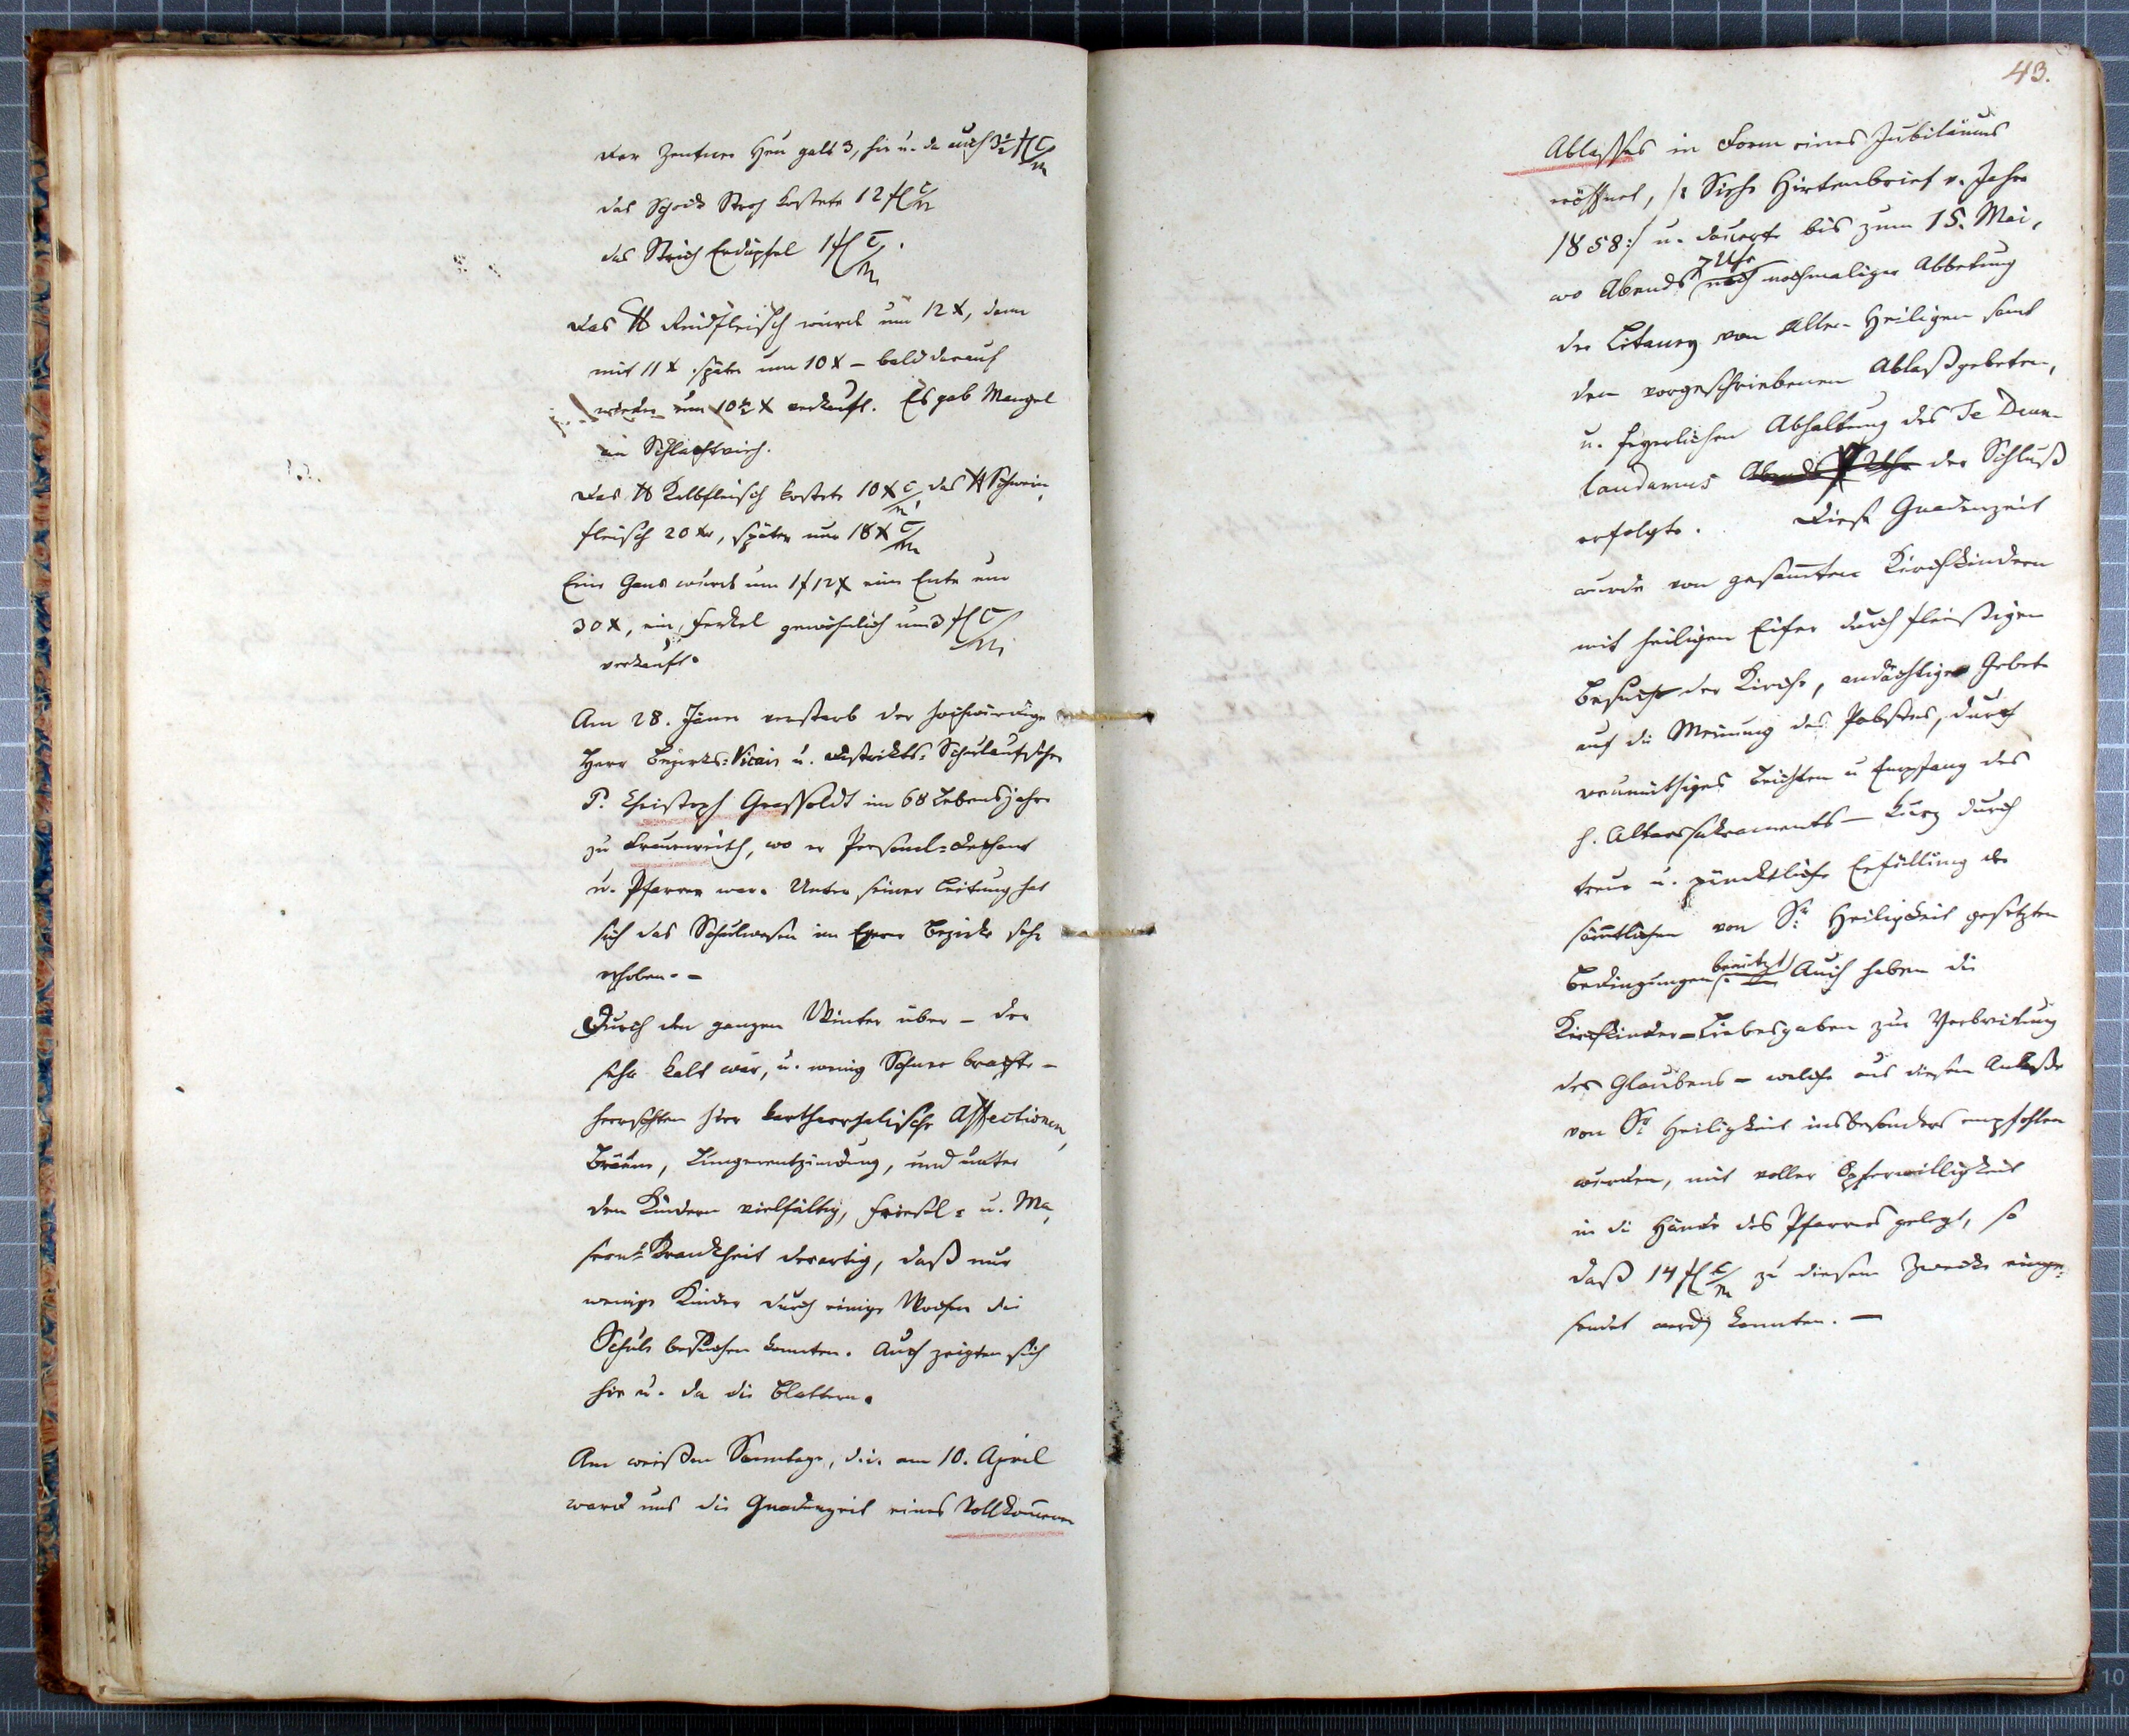 Der Zentner Heu galt 3, hie u. da auch 3½ fl C/M
das Schock Stroh kostete 12 fl C/M
das Strich Erdäpfel 1 fl C/M.
Das ℔ Rindfleisch wurde um 12 x, dann
mit 11 x später um 10 x – bald darauf
wieder um 10½ x verkauft. Es gab Mangel
an Schlachtvieh.
Das ℔ Kalbfleisch kostete 10 x C/M, das ℔ Schwein-
fleisch 20 xr, später nur 18 x C/M
Eine Gans wurde um 1 f 12 x eine Ente um
30 x, ein Ferkel gewöhnlich um 3 fl C/M
verkauft.
Am 28. Jäner verstarb der hochwürdige
Herr Bezirks-Vicär u. Distrikts-Schulaufseher
P. Christoph Grassoldt im 68 Lebensjahre
zu Frauenreith, wo er Personal-Dechant
u. Pfarrer war. Unter seiner Leitung hat
sich das Schulwesen im Egerer Bezirke sehr
erhoben. –
Durch den ganzen Winter über – der
sehr kalt war, u. wenig Schnee brachte –
herrschten hier kartharrhalische Affectionen,
Bräune, Lungenentzündung, und unter
den Kindern vielfältig, Friesel- u. Ma-
sern-Krankheit derartig, daß nur
wenige Kinder durch einige Wochen die
Schule besuchen konnten. Auch zeigten sich
hie u. da die Blattern.
Am weißen Sonntage, d. i. am 10. April
ward uns die Gnadenzeit eines Vollkom̄enen
43.
Ablasses in Form eines Jubiläums
eröffnet, /: Siehe Hirtenbrief v. Jahre
1858 :/ u. dauerte bis zum 15. Mai,
wo Abends 7 Uhr nach nochmaliger Abbetung
der Litaney von Allen Heiligen samt
den vorgeschriebenen Ablaßgebeten,
u. feyerlichen Abhaltung des Te Deum
laudamus Abends 7 Uhr der Schluß
erfolgte. Diese Gnadenzeit
wurde von gesam̄ten Kirchkindern
mit heiligen Eifer durch fleißigen
Besuch der Kirche, andächtiges Gebet
auf die Meinung des Pabstes, durch
reumüthiges Beichten u Empfang des
h. Altarssakraments – kurz durch
treue u. pünktliche Erfüllung der
säm̄tlichen von Sr Heiligkeit gesetzten
Bedingungen benützt. Auch haben die
Kirchkinder – Liebesgaben zur Verbreitung
des Glaubens – welche aus diesem Anlaße
von Sr Heiligkeit insbesonders empfohlen
wurden, mit voller Opferwilligkeit
in die Hände des Pfarrers gelegt, so
daß 14 fl C/M zu diesem Zwecke einge-
sendet werd konnten. –